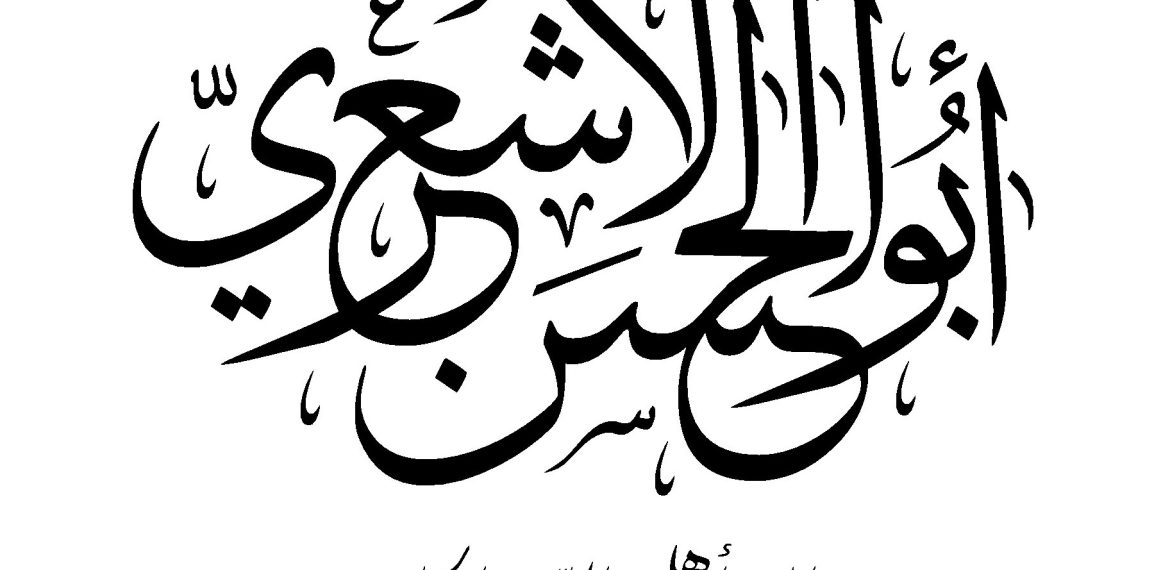 أبو الحسن الأشعري